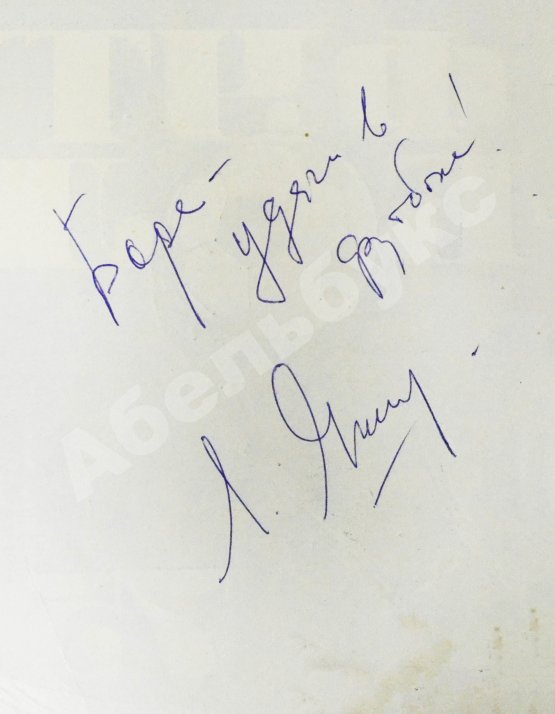 Боре -
удачи в
футболе!
Л. Яшин
Абельбукс